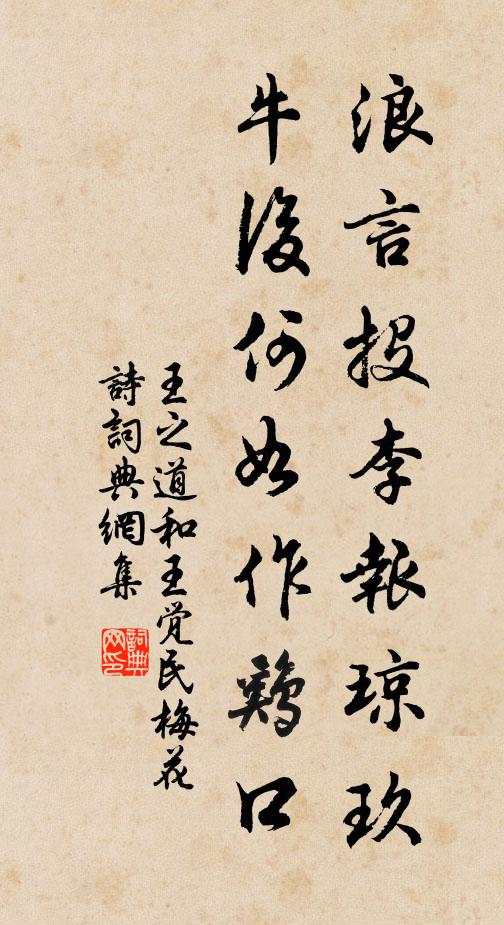 浪言投李報琼玖
牛後何如作鷄口
王之道和王覚民梅花
詩詞典網集
詞典
网印